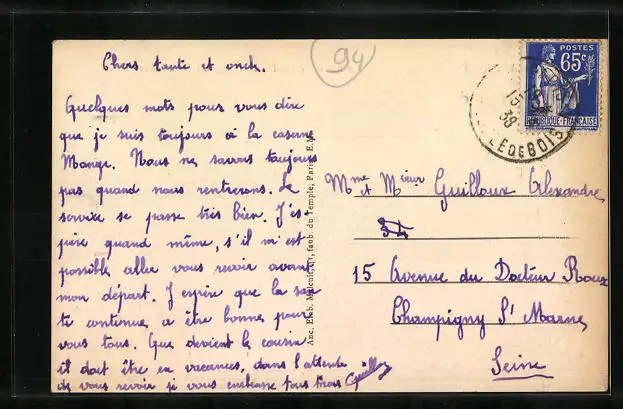 Chers tante et oncle.
94
Quelques mots pour vous dire
que je suis toujours à la caserne
Monge. Nous ne savons toujours
pas quand nous rentrerons. Le
service se passe très bien. J'es-
père quand même, s'il m'est
possible aller vous revoir avant
mon départ. J'espère que la san-
té continue à être bonne pour
vous tous. Que devient le cousin
il doit être en vacances, dans l'attente
de vous revoir je vous embrasse tous trois
Anc. Etab. Malcuit, 41, faub. du Temple, Paris E.M.
POSTES
65c
RÉPUBLIQUE-FRANÇAISE
38
LEDEBOIS
Mme et Msieur Guilloux Alexandre
15 Avenue du Docteur Roux
Champigny S/ Marne
Seine